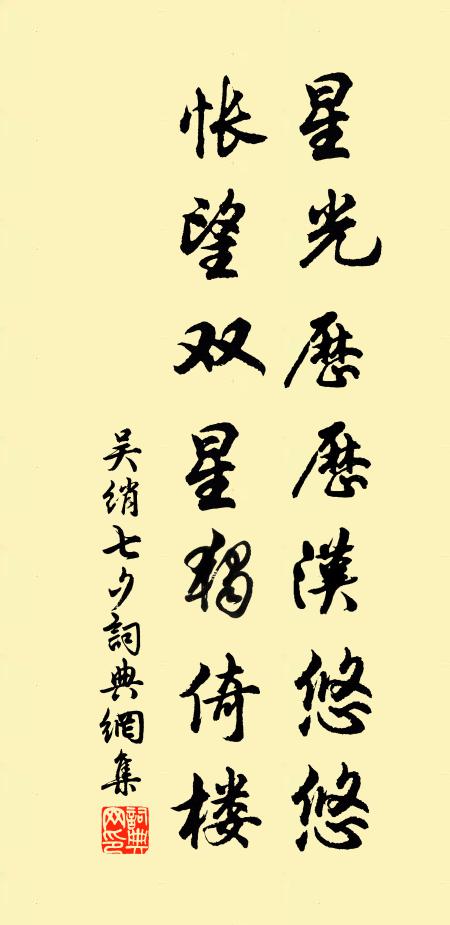 星光歷歷漢悠悠
悵望双星獨倚楼
吴绡七夕詞典網集
詞典
网印